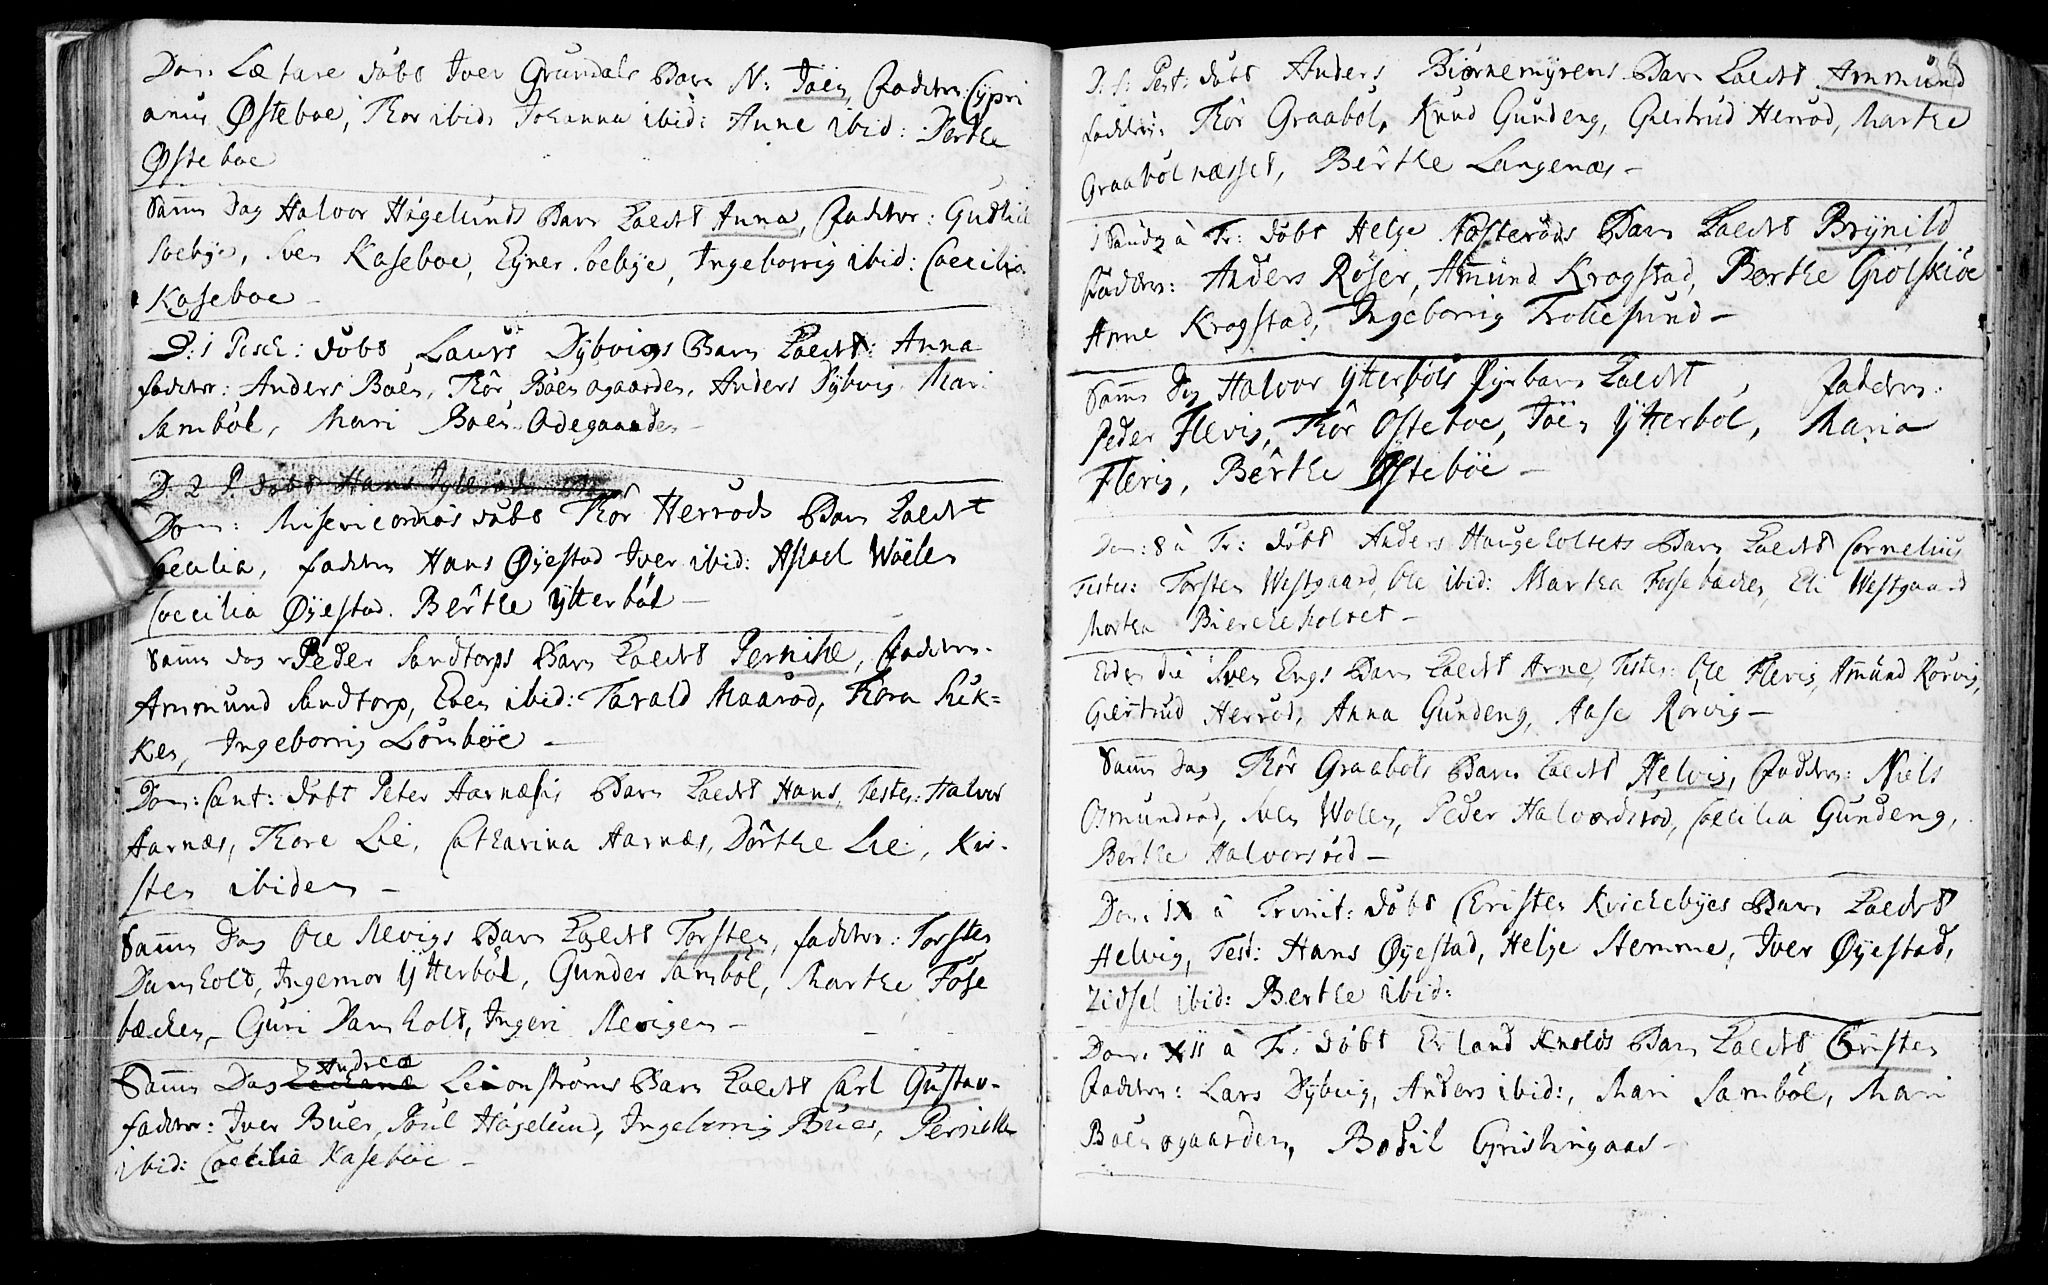 Dom: Lætare døbt Iver Grundals Barn N: Joen, Fadder: Cypri
anus Østeboe, Thor ibid: Johanna ibid: Anne ibid: Berthe
Østeboe
Samme Dag Halvor Høgelunds Barn kaldt Anna, Fadder: Gudlich
Soebye, Sven Kaseboe, Eyner Soebye, Ingeborrig ibid: Coecilia
Kaseboe –
D: 1 Pasch: døbt Laurs Dybvigs Barn kaldt: Anna
fadder: Anders Boen, Thôr Boensogaarden, Anders Dybvig, Mari
Sambøl, Mari Boens Odegaarden –
D. 2 P. døbt Hans
Dom: Misericordias døbt Thôr Herrøds Barn kaldt
Cecilia, fadder Hans Øyestad Iver ibid: Aslael Wôlen
Coecilia Øyestad. Bêrthe Ytterbøl –
Samme dag Peder Sandtorps Barn kaldt Pernille, Fadder.
Ammund Sandtorp, Even ibid: Tarald Maarød, Thora Sik=
ken, Ingeborrig Lönböe –
Dom: Cant: døbt Peter Aarnæsis Barn kaldt Hans, Testes: Halvor
Aarnæs, Thore Lie, Catharina Aarnæs, Dôrthe Lie, Kir-
sten ibidem –
Samme Dag Ole Revigs Barn kaldt Torsten, fadder: Torsten
Damhold, Ingemor Ytterbøl, Gunder Sambøl, Marthe Fose
bæcken, Guri Damholt, Ingeri Revigen –
Samme Dag Andreæ Leionstrøms Barn kaldt Carl Gustav-
fadder: Iver Buer, Poul Høgelund, Ingeborrig Buer, Pernille
ibid: Coecilia Kaseböe –
D: 1: Pent: døbt Anders Biørnemyrens Barn kaldt Ammund
fadder: Thôr Graabøl, Knud Gundeng, Giertrud Herrød, Marthe
Graabølnæsset, Bêrthe Langenæs –
1 Søndag à Tr: døbt Helge Nøsterøds Barn kaldt Brynild
Fadder: Anders Röser, Amund Kragstad, Berthe Giölsiöe
Anne Kragstad, Ingeborrig Trollesund –
Samme Dag Halvor Ytterbøls Pigebarn kaldt , Fadder:
Peder Flevig, Thôr Østeboe, Joen Ytterbøl, Maria
Flevig, Bêrthe Østebøe –
Dom: 8 à Tr: døbt Anders Haugeholtets Barn kaldt Cornelius
Testes: Torsten Westgaard, Ole ibid: Martha Fossebæcken, Eli Westgaard
Martha Bierckeholtet –
Eodem die Sven Engs Barn kaldt Arne, Testes: Ole Flevig, Amund Rørvig,
Giertrud Herrød, Anna Gundeng, Aase Rørvig –
Samme Dag Thôr Graabøls Barn kaldt Helvig, Fadder: Niels
Osmundrød, Sven Wolen, Peder Halvordsrød, Coecilia Gundeng,
Berthe Halvorsrød –
Dom: IX à Trinit: døbt Christen Kirckebyes Barn kaldt
Helvig, Test: Hans Øyestad, Helje Stemme, Iver Øyestad,
Zidsel ibid: Berthe ibid:
Dom: XII à Tr: døbt Erland Knolds Barn kaldt Cristen
Fadder: Lars Dybvig, Anders ibid:, Mari Sambøl, Mari
Boensogaarden, Bodil Grislingaas –